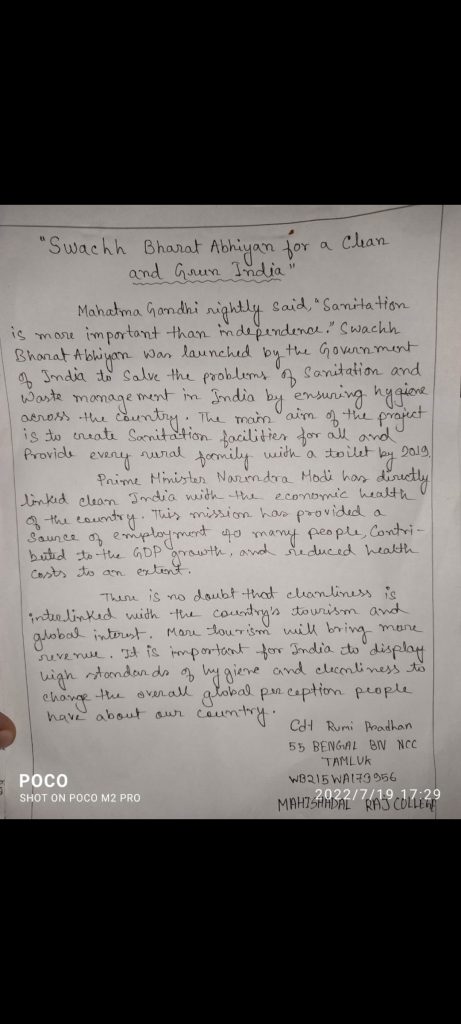 "Swachh Bharat Abhiyan for a Clean
and Green India"
Mahatma Gandhi rightly said, "Sanitation
is more important than independence." Swachh
Bharat Abhiyan was launched by the Government
of India to Solve the problems of Sanitation and
Waste management in India by ensuring hygiene
across the country. The main aim of the project
is to create Sanitation facilities for all and
Provide every rural family with a toilet by 2019.
Prime Minister Narendra Modi has directly
linked clean India with the economic health
of the country. This mission has provided a
Source of employment to many people, Contri-
buted to the GDP growth, and reduced health
costs to an extent.
There is no doubt that cleanliness is
interlinked with the country's tourism and
global interest. More tourism will bring more
revenue. It is important for India to display
high standards of hygiene and cleanliness to
change the overall global perception people
have about our country.
Cdt Rumi Pradhan
55 BENGAL BN NCC
TAMLUK
WB21SWA173956
MAHISHADAL RAJ COLLEGE
POCO
SHOT ON POCO M2 PRO
2022/7/19 17:29